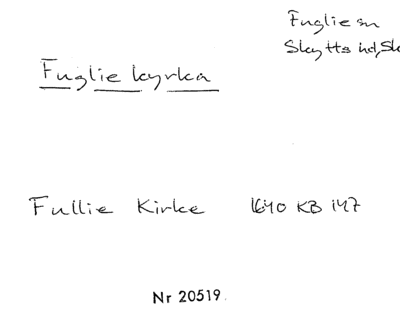 Fuglie sn
Skytts hd, Sk
Fuglie kyrka
Fullie Kirke 1640 KB 147
Nr 20519.